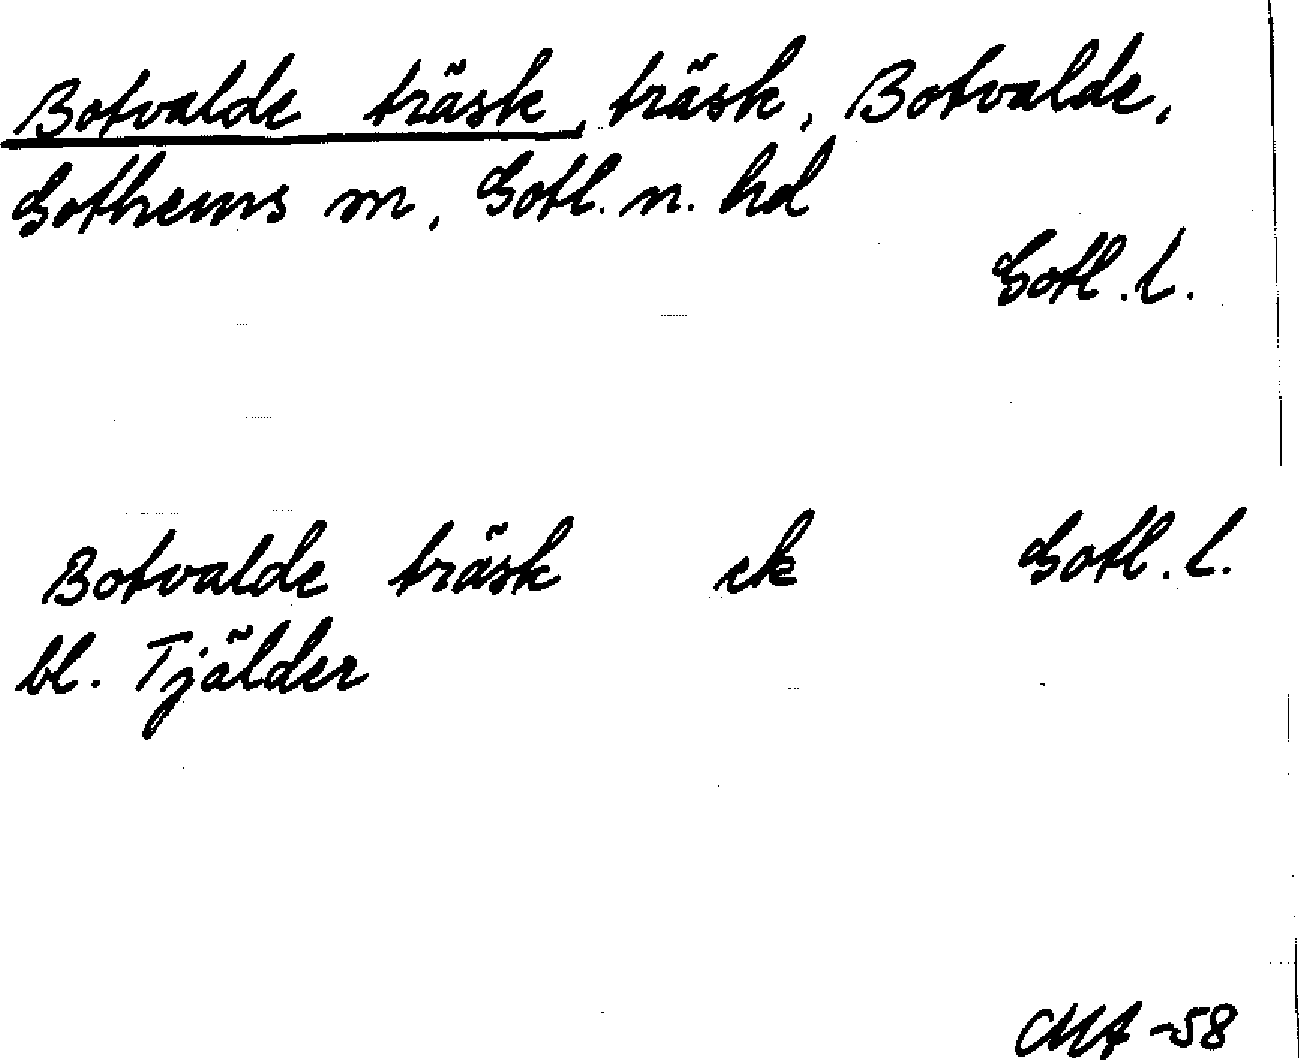 Botvalde träsk, träsk, Botvalde,
Gothems sn, Gotl. n. hd
Gotl. l.
Botvalde träsk ek Gotl. l.
bl. Tjälder
CMA -58